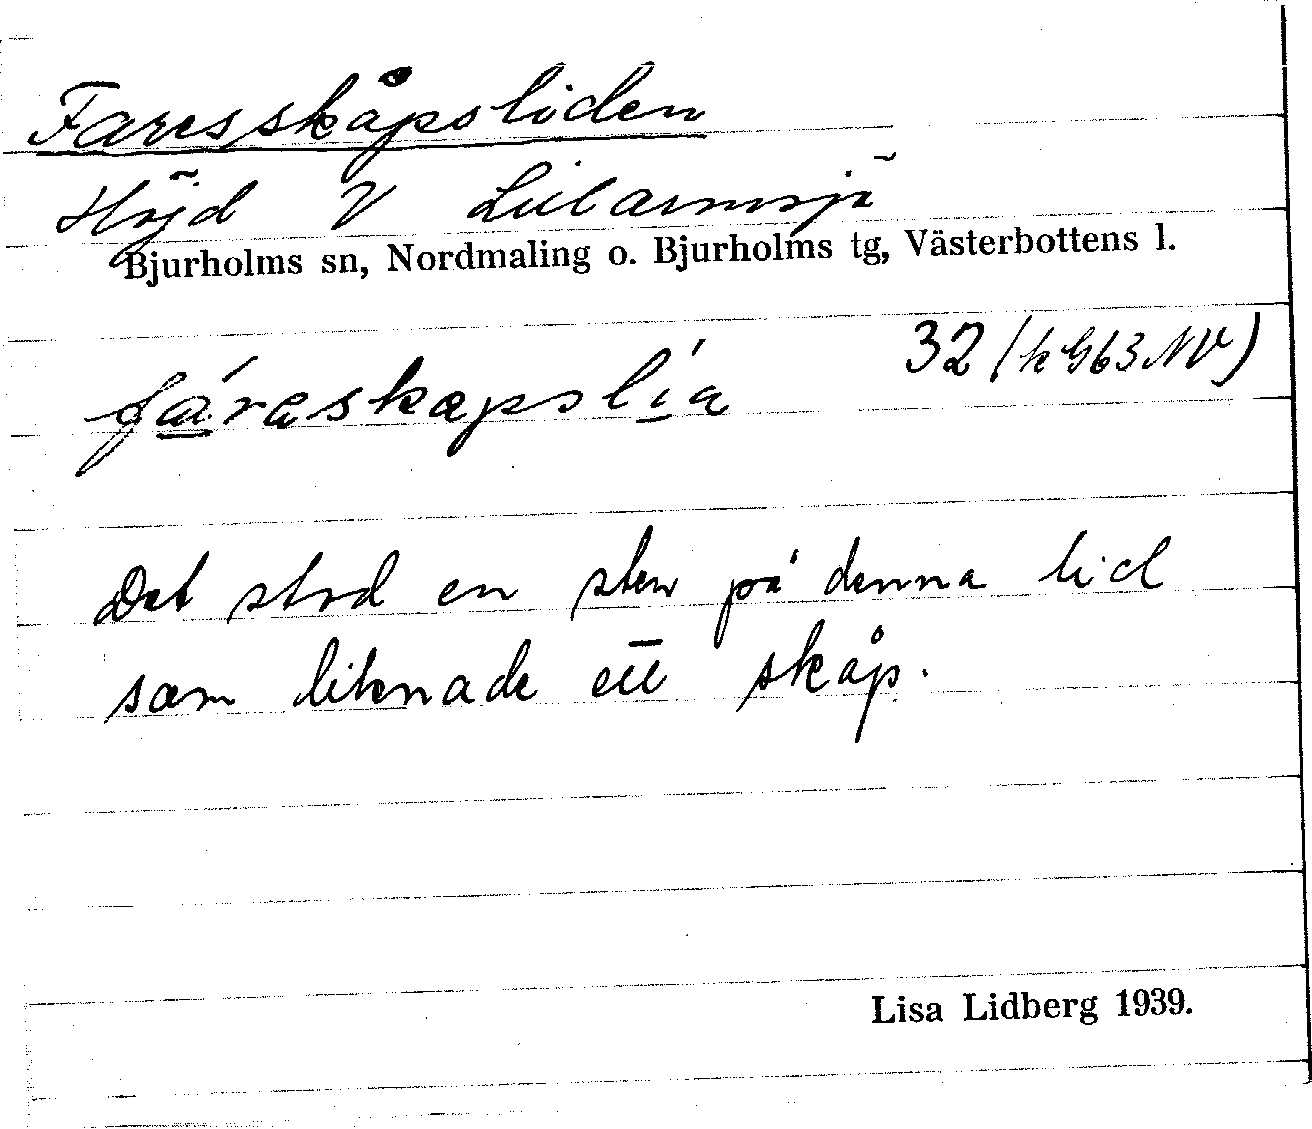 Faresskåpsliden
Höjd V Lillarmsjö
Bjurholms sn, Nordmaling o. Bjurholms tg, Västerbottens l.
32 (k G63 NV)
fáraskapslía
Det stod en sten på denna lid
som liknade ett skåp.
Lisa Lidberg 1939.